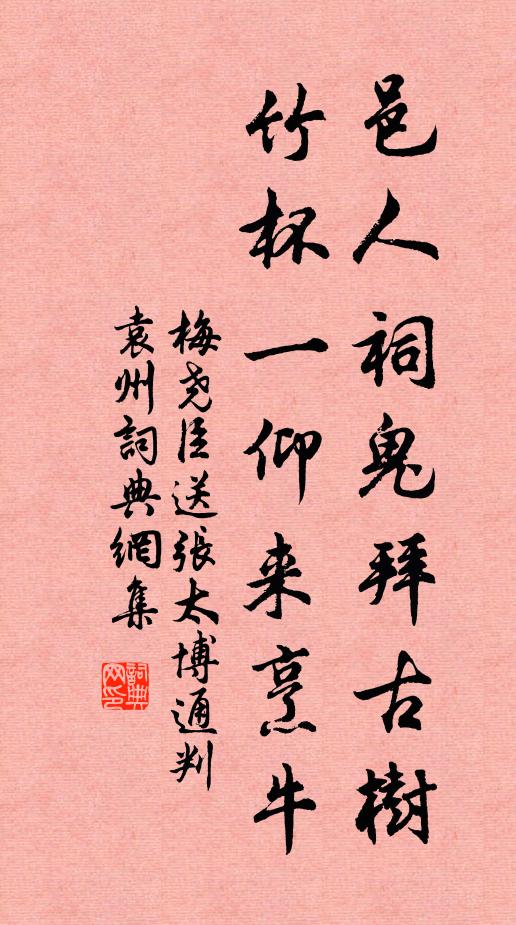 邑人祠鬼拜古樹
竹杯一仰来烹牛
梅尧臣送張太博通判
袁州詞典網集
詞典网印